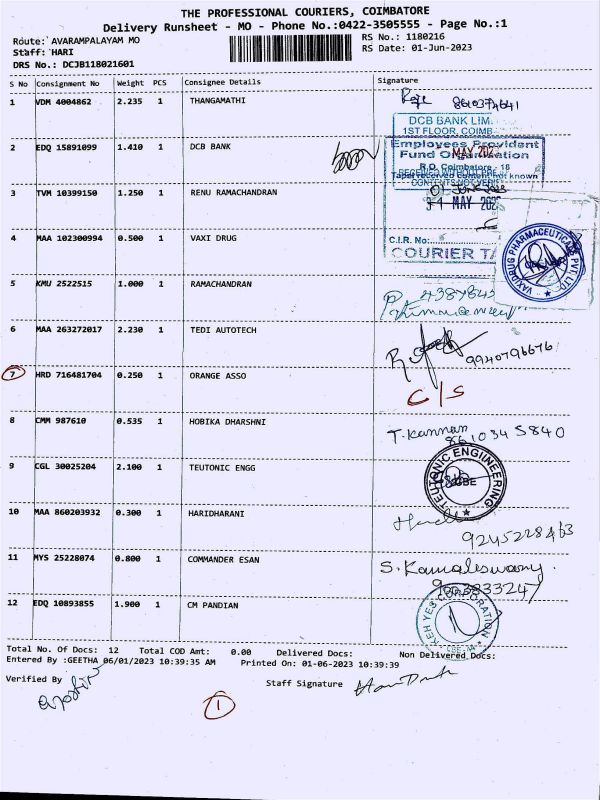 THE PROFESSIONAL COURIERS, COIMBATORE
Delivery Runsheet - MO - Phone No.:0422-3505555 - Page No.:1
Route: AVARAMPALAYAM MO
RS No.: 1180216
Staff: HARI
RS Date: 01-Jun-2023
DRS No.: DCJB118021601
S No Consignment No Weight PCS Consignee Details Signature
1 VDM 4004862 2.235 1 THANGAMATHI
DCB BANK LIM
1ST FLOOR, COIMB
2 EDQ 15891099 1.410 1 DCB BANK
Employees Provident
Fund Organisation
R.O. Coimbatore - 18
3 TVM 10399150 1.250 1 RENU RAMACHANDRAN
4 MAA 102300994 0.500 1 VAXI DRUG
VAXIDRUG PHARMACEUTICALS PVT LTD
C.I.R. No:
COURIER TA
5 KMU 2522515 1.000 1 RAMACHANDRAN
6 MAA 263272017 2.230 1 TEDI AUTOTECH
9940796676
7 HRD 716481704 0.250 1 ORANGE ASSO
C/S
8 CMM 987610 0.535 1 HOBIKA DHARSHNI
T. Kannan
861034 5840
9 CGL 30025204 2.100 1 TEUTONIC ENGG
TEUTONIC ENGINEERING
CBE
10 MAA 860203932 0.300 1 HARIDHARANI
11 MYS 25228074 0.800 1 COMMANDER ESAN
S. Kamaleswary.
12 EDQ 10893855 1.900 1 CM PANDIAN
KEH YES CORPORATION
Total No. Of Docs: 12 Total COD Amt: 0.00 Delivered Docs: Non Delivered Docs:
Entered By :GEETHA 06/01/2023 10:39:35 AM Printed On: 01-06-2023 10:39:39
Verified By
Staff Signature
1